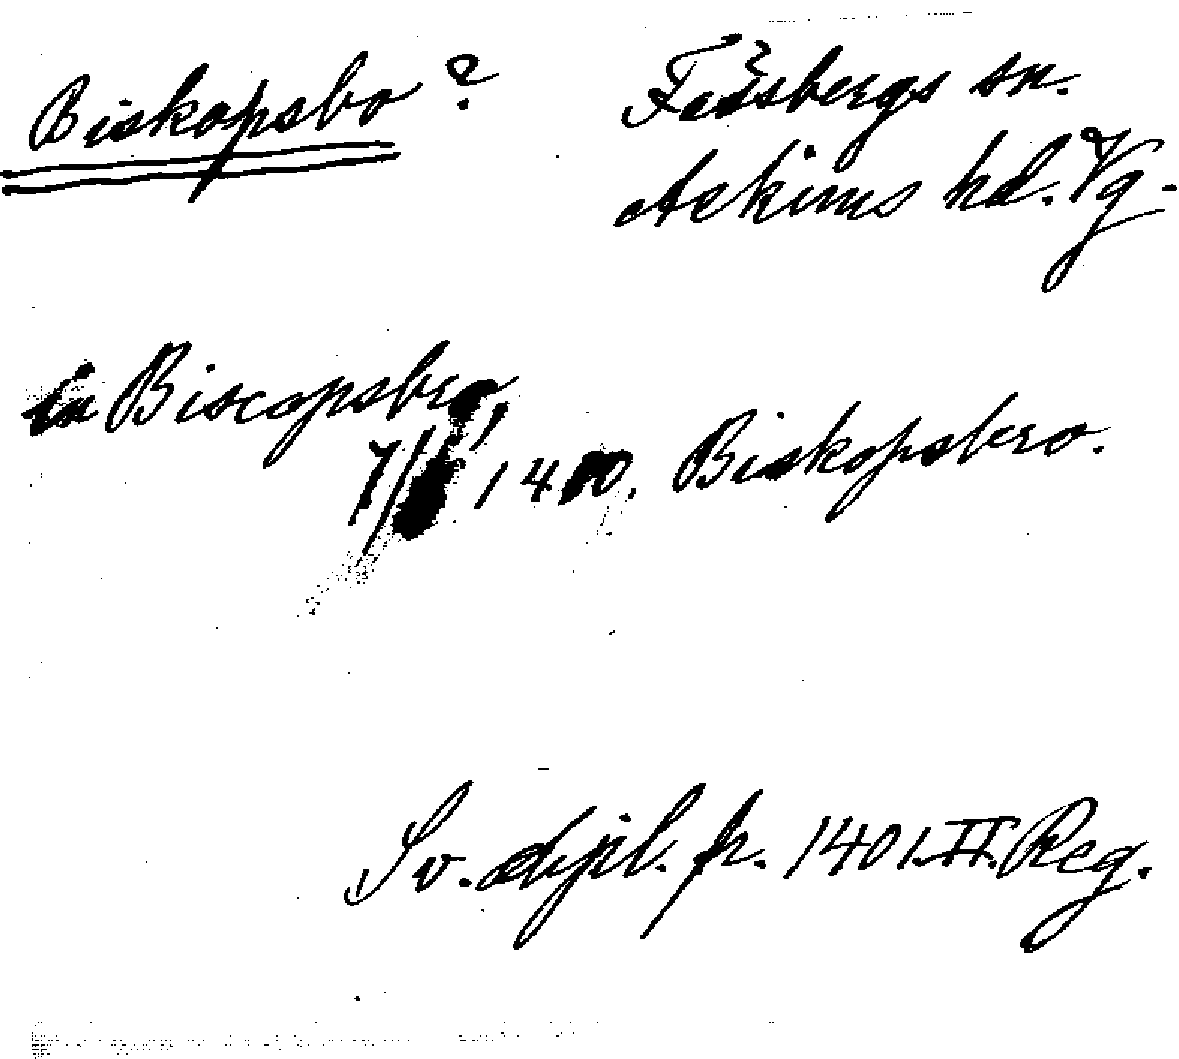 Biskopsbo? Fässbergs sn.
Askims hd. Vg.
in Biscopsbro,
1400. Biskopsbro.
Sv. dipl. fr. 1401. II. Reg.